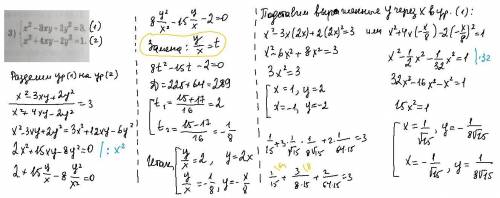 3) { x² - 3xy + 2y² = 3, (1)
x² + 4xy - 2y² = 1. (2)
Разделим ур(1) на ур(2)
(x² - 3xy + 2y²)/(x² + 4xy - 2y²) = 3
x² - 3xy + 2y² = 3x² + 12xy - 6y²
2x² + 15xy - 8y² = 0 | : x²
2 + 15 y/x - 8 y²/x² = 0
8 y²/x² - 15 y/x - 2 = 0
Замена: y/x = t
8t² - 15t - 2 = 0
D = 225 + 64 = 289
[ t₁ = (15+17)/16 = 2
t₂ = (15-17)/16 = -1/8
Итак, [ y/x = 2, y = 2x
y/x = -1/8, y = -x/8
Подставим выражение y через x в ур. (1):
x² - 3x(2x) + 2(2x)² = 3 или x² + 4x(-x/8) - 2(-x/8)² = 1
x² - 6x² + 8x² = 3
3x² = 3
[ x = 1, y = 2
x = -1, y = -2
x² - 1/2 x² - 1/32 x² = 1 | ·32
32x² - 16x² - x² = 1
15x² = 1
[ x = 1/√15, y = -1/8√15
x = -1/√15, y = 1/8√15
1/15 + 3 · 1/√15 · 1/8√15 + 2 · 1/64·15 = 3
1/15 + 3/8·15 + 2/64·15 = 3